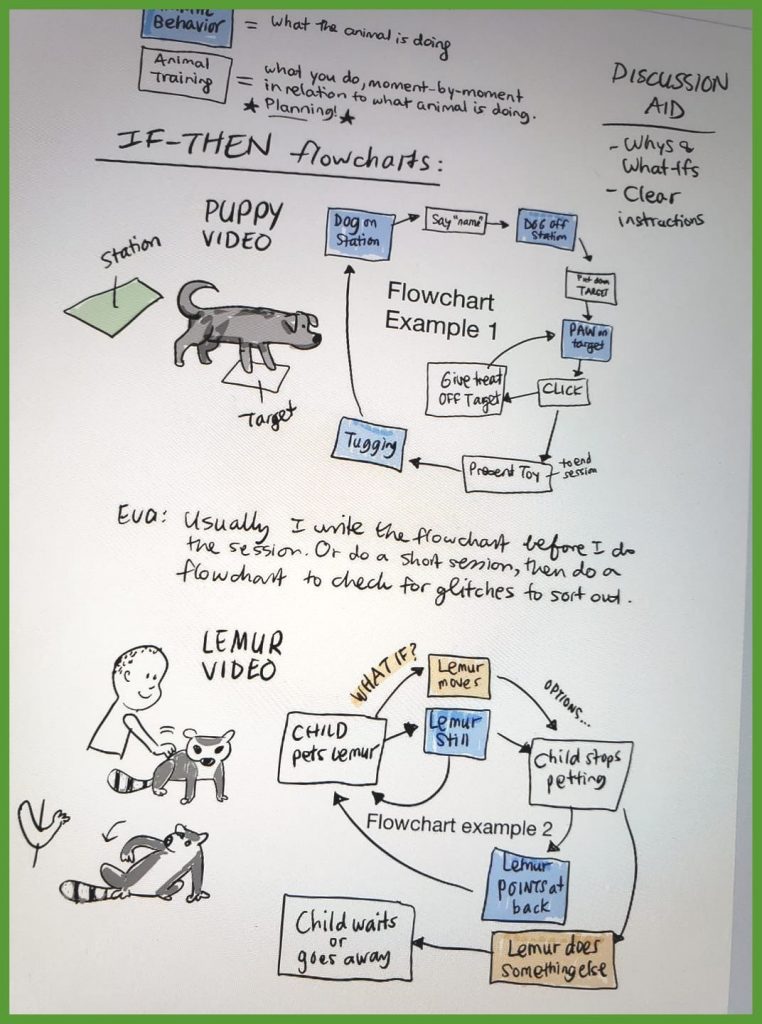 Behavior = what the animal is doing
Animal
Training = what you do, moment-by-moment
in relation to what animal is doing.
★ Planning! ★
DISCUSSION
AID
- Whys &
What-Ifs
- Clear
instructions
IF-THEN flowcharts:
PUPPY
VIDEO
Station
Target
Dog on
Station
Say "name"
DOG off
Station
Put down
TARGET
Flowchart
Example 1
PAW on
target
CLICK
Give treat
OFF Target
Present Toy
to end
session
Tugging
Eva: Usually I write the flowchart before I do
the session. Or do a short session, then do a
flowchart to check for glitches to sort out.
LEMUR
VIDEO
WHAT IF?
Lemur
moves
OPTIONS...
CHILD
pets lemur
Lemur
Still
Child stops
petting
Flowchart example 2
Lemur
POINTS at
back
Child waits
or
goes away
Lemur does
something else